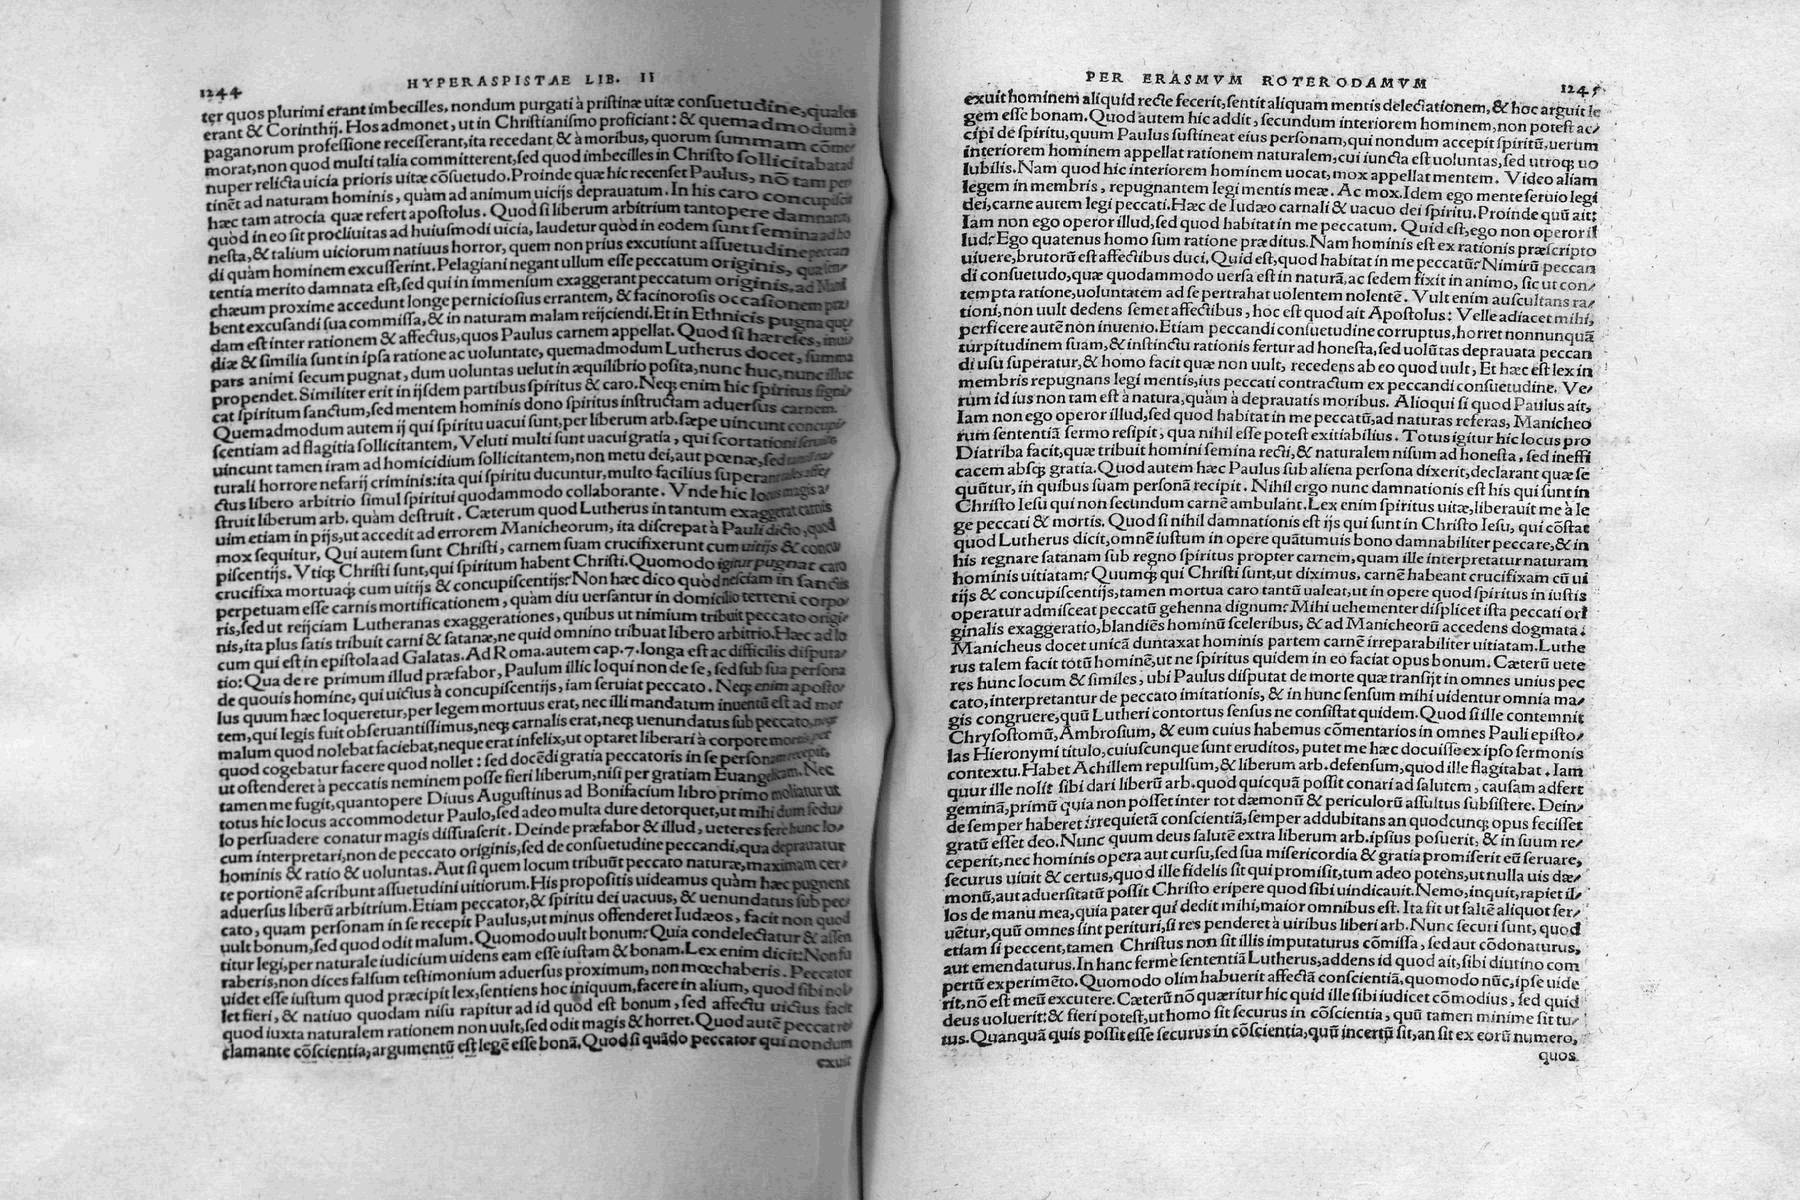 1244
HYPERASPISTAE LIB. II
ter quos plurimi erant imbecilles, nondum purgati à pristinæ uitæ consuetudine, quales
erant & Corinthij. Hos admonet, ut in Christianismo proficiant: & quemadmodum à
paganorum professione recesserant, ita recedant & à moribus, quorum summam cõme
morat, non quod multi talia committerent, sed quod imbecilles in Christo sollicitabat ad
nuper relicta uicia prioris uitæ cõsuetudo. Proinde quæ hic recenset Paulus, nõ tam per
tinẽt ad naturam hominis, quàm ad animum uicijs deprauatum. In his caro concupiscit
hæc tam atrocia quæ refert apostolus. Quod si liberum arbitrium tantopere damnatur
quòd in eo sit procliuitas ad huiusmodi uicia, laudetur quòd in eodem sunt semina ad ho
nesta, & talium uiciorum natiuus horror, quem non prius excutiunt assuetudine peccan
di quàm hominem excusserint. Pelagiani negant ullum esse peccatum originis, quæ sen/
tentia merito damnata est, sed qui in immensum exaggerant peccatum originis, ad Mani
chæum proxime accedunt longe perniciosius errantem, & facinorosis occasionem præ/
bent excusandi sua commissa, & in naturam malam reijciendi. Et in Ethnicis pugna quæ/
dam est inter rationem & affectus, quos Paulus carnem appellat. Quod si hæreses, inui/
diæ & similia sunt in ipsa ratione ac uoluntate, quemadmodum Lutherus docet, summa
pars animi secum pugnat, dum uoluntas uelut in æquilibrio posita, nunc huc, nunc illuc
propendet. Similiter erit in ijsdem partibus spiritus & caro. Neq; enim hic spiritus signi/
cat spiritum sanctum, sed mentem hominis dono spiritus instructam aduersus carnem.
Quemadmodum autem ij qui spiritu uacui sunt, per liberum arb. sæpe uincunt concupi/
scentiam ad flagitia sollicitantem, Veluti multi sunt uacui gratia, qui scortationi seruientes
uincunt tamen iram ad homicidium sollicitantem, non metu dei, aut pœnæ, sed
turali horrore nefarij criminis: ita qui spiritu ducuntur, multo facilius superant tales affe/
ctus libero arbitrio simul spiritui quodammodo collaborante. Vnde hic locus magis a/
struit liberum arb. quàm destruit. Cæterum quod Lutherus in tantum exaggerat carnis
uim etiam in pijs, ut accedit ad errorem Manicheorum, ita discrepat à Pauli dicto, quod
mox sequitur, Qui autem sunt Christi, carnem suam crucifixerunt cum uitijs & concu
piscentijs. Vtiq; Christi sunt, qui spiritum habent Christi. Quomodo igitur pugnat caro
crucifixa mortuaq; cum uitijs & concupiscentijs? Non hæc dico quòd nesciam in sanctis
perpetuam esse carnis mortificationem, quàm diu uersantur in domicilio terreni corpo/
ris, sed ut reijciam Lutheranas exaggerationes, quibus ut nimium tribuit peccato origi/
nis, ita plus satis tribuit carni & satanæ, ne quid omnino tribuat libero arbitrio. Hæc ad lo
cum qui est in epistola ad Galatas. Ad Roma. autem cap. 7. longa est ac difficilis disputa/
tio: Qua de re primum illud præfabor, Paulum illic loqui non de se, sed sub sua persona
de quouis homine, qui uictus à concupiscentijs, iam seruiat peccato. Neq; enim aposto/
lus quum hæc loqueretur, per legem mortuus erat, nec illi mandatum inuentũ est ad mor
tem, qui legis fuit obseruantissimus, neq; carnalis erat, neq; uenundatus sub peccato, neq;
malum quod nolebat faciebat, neque erat infelix, ut optaret liberari à corpore mortis, per
quod cogebatur facere quod nollet: sed docẽdi gratia peccatoris in se personam recepit,
ut ostenderet à peccatis neminem posse fieri liberum, nisi per gratiam Euangelicam. Nec
tamen me fugit, quantopere Diuus Augustinus ad Bonifacium libro primo moliatur ut
totus hic locus accommodetur Paulo, sed adeo multa dure detorquet, ut mihi dum sedu/
lo persuadere conatur magis dissuaserit. Deinde præfabor & illud, ueteres fere hunc lo/
cum interpretari, non de peccato originis, sed de consuetudine peccandi, qua deprauatur
hominis & ratio & uoluntas. Aut si quem locum tribuũt peccato naturæ, maximam cer/
te portionẽ ascribunt assuetudini uitiorum. His propositis uideamus quàm hæc pugnent
aduersus liberũ arbitrium. Etiam peccator, & spiritu dei uacuus, & uenundatus sub pec/
cato, quam personam in se recepit Paulus, ut minus offenderet Iudæos, facit non quod
uult bonum, sed quod odit malum. Quomodo uult bonum? Quia condelectatur & assen
titur legi, per naturale iudicium uidens eam esse iustam & bonam. Lex enim dicit: Non fu
raberis, non dices falsum testimonium aduersus proximum, non mœchaberis. Peccator
uidet esse iustum quod præcipit lex, sentiens hoc iniquum, facere in alium, quod sibi nol/
let fieri, & natiuo quodam nisu rapitur ad id quod est bonum, sed affectu uictus facit
quod iuxta naturalem rationem non uult, sed odit magis & horret. Quod autẽ peccatre/
clamante cõscientia, argumentũ est legẽ esse bonã. Quod si quãdo peccator qui nondum
exuit
PER ERASMVM ROTERODAMVM
1245
exuit hominem aliquid recte fecerit, sentit aliquam mentis delectationem, & hoc arguit le
gem esse bonam. Quod autem hic addit, secundum interiorem hominem, non potest ac/
cipi de spiritu, quum Paulus sustineat eius personam, qui nondum accepit spiritũ, uerum
interiorem hominem appellat rationem naturalem, cui iuncta est uoluntas, sed utroq; uo
lubilis. Nam quod hic interiorem hominem uocat, mox appellat mentem. Video aliam
legem in membris, repugnantem legi mentis meæ. Ac mox. Idem ego mente seruio legi
dei, carne autem legi peccati. Hæc de Iudæo carnali & uacuo dei spiritu. Proinde quũ ait:
Iam non ego operor illud, sed quod habitat in me peccatum. Quid est, ego non operor il
lud? Ego quatenus homo sum ratione præditus. Nam hominis est ex rationis præscripto
uiuere, brutorũ est affectibus duci. Quid est, quod habitat in me peccatũ? Nimirũ peccan
di consuetudo, quæ quodammodo uersa est in naturã, ac sedem fixit in animo, sic ut con/
tempta ratione, uoluntatem ad se pertrahat uolentem nolentẽ. Vult enim auscultans ra/
tioni, non uult dedens semet affectibus, hoc est quod ait Apostolus: Velle adiacet mihi,
perficere autẽ non inuenio. Etiam peccandi consuetudine corruptus, horret nonnunquã
turpitudinem suam, & instinctu rationis fertur ad honesta, sed uolũtas deprauata peccan
di usu superatur, & homo facit quæ non uult, recedens ab eo quod uult, Et hæc est lex in
membris repugnans legi mentis, ius peccati contractum ex peccandi consuetudine. Ve/
rùm id ius non tam est à natura, quàm à deprauatis moribus. Alioqui si quod Paulus ait,
Iam non ego operor illud, sed quod habitat in me peccatũ, ad naturas referas, Manicheo
rum sententiã sermo resipit, qua nihil esse potest exitiabilius. Totus igitur hic locus pro
Diatriba facit, quæ tribuit homini semina recti, & naturalem nisum ad honesta, sed ineffi
cacem absq; gratia. Quod autem hæc Paulus sub aliena persona dixerit, declarant quæ se
quũtur, in quibus suam personã recipit. Nihil ergo nunc damnationis est his qui sunt in
Christo Iesu qui non secundum carnẽ ambulant. Lex enim spiritus uitæ, liberauit me à le
ge peccati & mortis. Quod si nihil damnationis est ijs qui sunt in Christo Iesu, qui cõstat
quod Lutherus dicit, omnẽ iustum in opere quãtumuis bono damnabiliter peccare, & in
his regnare satanam sub regno spiritus propter carnem, quam ille interpretatur naturam
hominis uitiatam? Quumq; qui Christi sunt, ut diximus, carnẽ habeant crucifixam cũ ui
tijs & concupiscentijs, tamen mortua caro tantũ ualeat, ut in opere quod spiritus in iustis
operatur admisceat peccatũ gehenna dignum? Mihi uehementer displicet ista peccati ori
ginalis exaggeratio, blandiẽs hominũ sceleribus, & ad Manicheorũ accedens dogmata:
Manicheus docet unicã duntaxat hominis partem carnẽ irreparabiliter uitiatam. Luthe
rus talem facit totũ hominẽ, ut ne spiritus quidem in eo faciat opus bonum. Cæterũ uete
res hunc locum & similes, ubi Paulus disputat de morte quæ transijt in omnes unius pec
cato, interpretantur de peccato imitationis, & in hunc sensum mihi uidentur omnia ma/
gis congruere, quũ Lutheri contortus sensus ne consistat quidem. Quod si ille contemnit
Chrysostomũ, Ambrosium, & eum cuius habemus cõmentarios in omnes Pauli episto/
las Hieronymi titulo, cuiuscunque sunt eruditos, putet me hæc docuisse ex ipso sermonis
contextu. Habet Achillem repulsum, & liberum arb. defensum, quod ille flagitabat. Iam
quur ille nolit sibi dari liberũ arb. quod quicquã possit conari ad salutem, causam adfert
geminã, primũ quia non posset inter tot dæmonũ & periculorũ assultus subsistere. Dein/
de semper haberet irrequietã conscientiã, semper addubitans an quodcunq; opus fecisset
gratũ esset deo. Nunc quum deus salutẽ extra liberum arb. ipsius posuerit, & in suum re/
ceperit, nec hominis opera aut cursu, sed sua misericordia & gratia promiserit eũ seruare,
securus uiuit & certus, quod ille fidelis sit qui promisit, tum adeo potens, ut nulla uis dæ/
monũ, aut aduersitatũ possit Christo eripere quod sibi uindicauit. Nemo, inquit, rapiet il/
los de manu mea, quia pater qui dedit mihi, maior omnibus est. Ita fit ut saltẽ aliquot ser/
uẽtur, quũ omnes sint perituri, si res penderet à uiribus liberi arb. Nunc securi sunt, quod
etiam si peccent, tamen Christus non sit illis imputaturus cõmissa, sed aut cõdonaturus,
aut emendaturus. In hanc ferme sententiã Lutherus, addens id quod ait, sibi diutino com
pertũ experimẽto. Quomodo olim habuerit affectã conscientiã, quomodo nũc, ipse uide
rit, nõ est meũ excutere. Cæterũ nõ quæritur hic quid ille sibi iudicet cõmodius, sed quid
deus uoluerit: & fieri potest, ut homo sit securus in cõscientia, quũ tamen minime sit tu/
tus. Quanquã quis possit esse securus in cõscientia, quũ incertũ sit, an sit ex eorũ numero,
quos